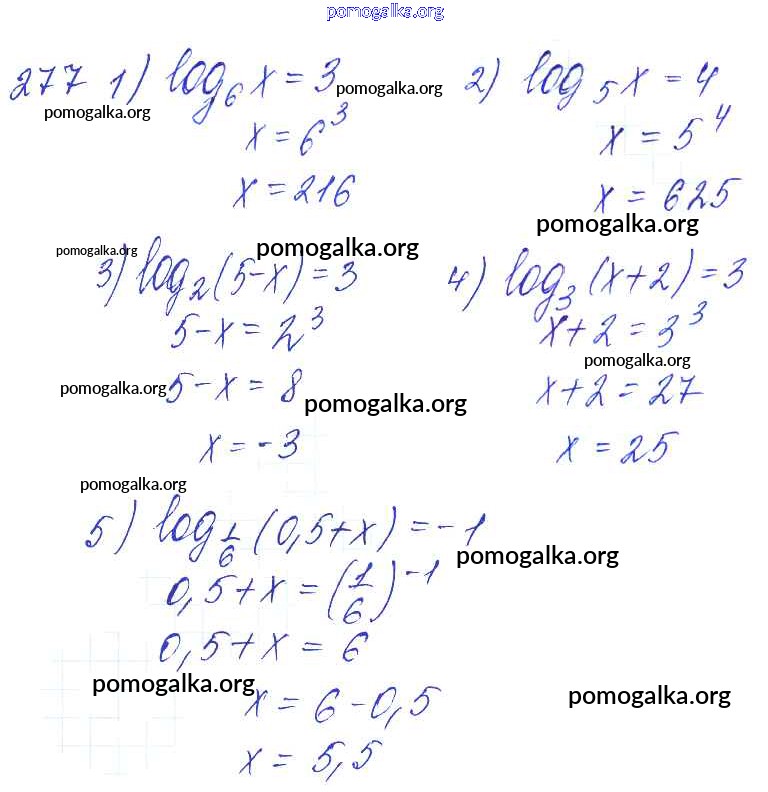 pomogalka.org
277 1) log₆x = 3 pomogalka.org 2) log₅x = 4
pomogalka.org x = 6³ x = 5⁴
x = 216 x = 625
pomogalka.org
pomogalka.org pomogalka.org
3) log₂(5-x) = 3 4) log₃(x+2) = 3
5-x = 2³ x+2 = 3³
pomogalka.org
pomogalka.org 5-x = 8 pomogalka.org x+2 = 27
x = -3 x = 25
pomogalka.org
5) log_{1/6}(0,5+x) = -1
pomogalka.org
0,5+x = (1/6)⁻¹
0,5+x = 6
pomogalka.org pomogalka.org
x = 6-0,5
x = 5,5